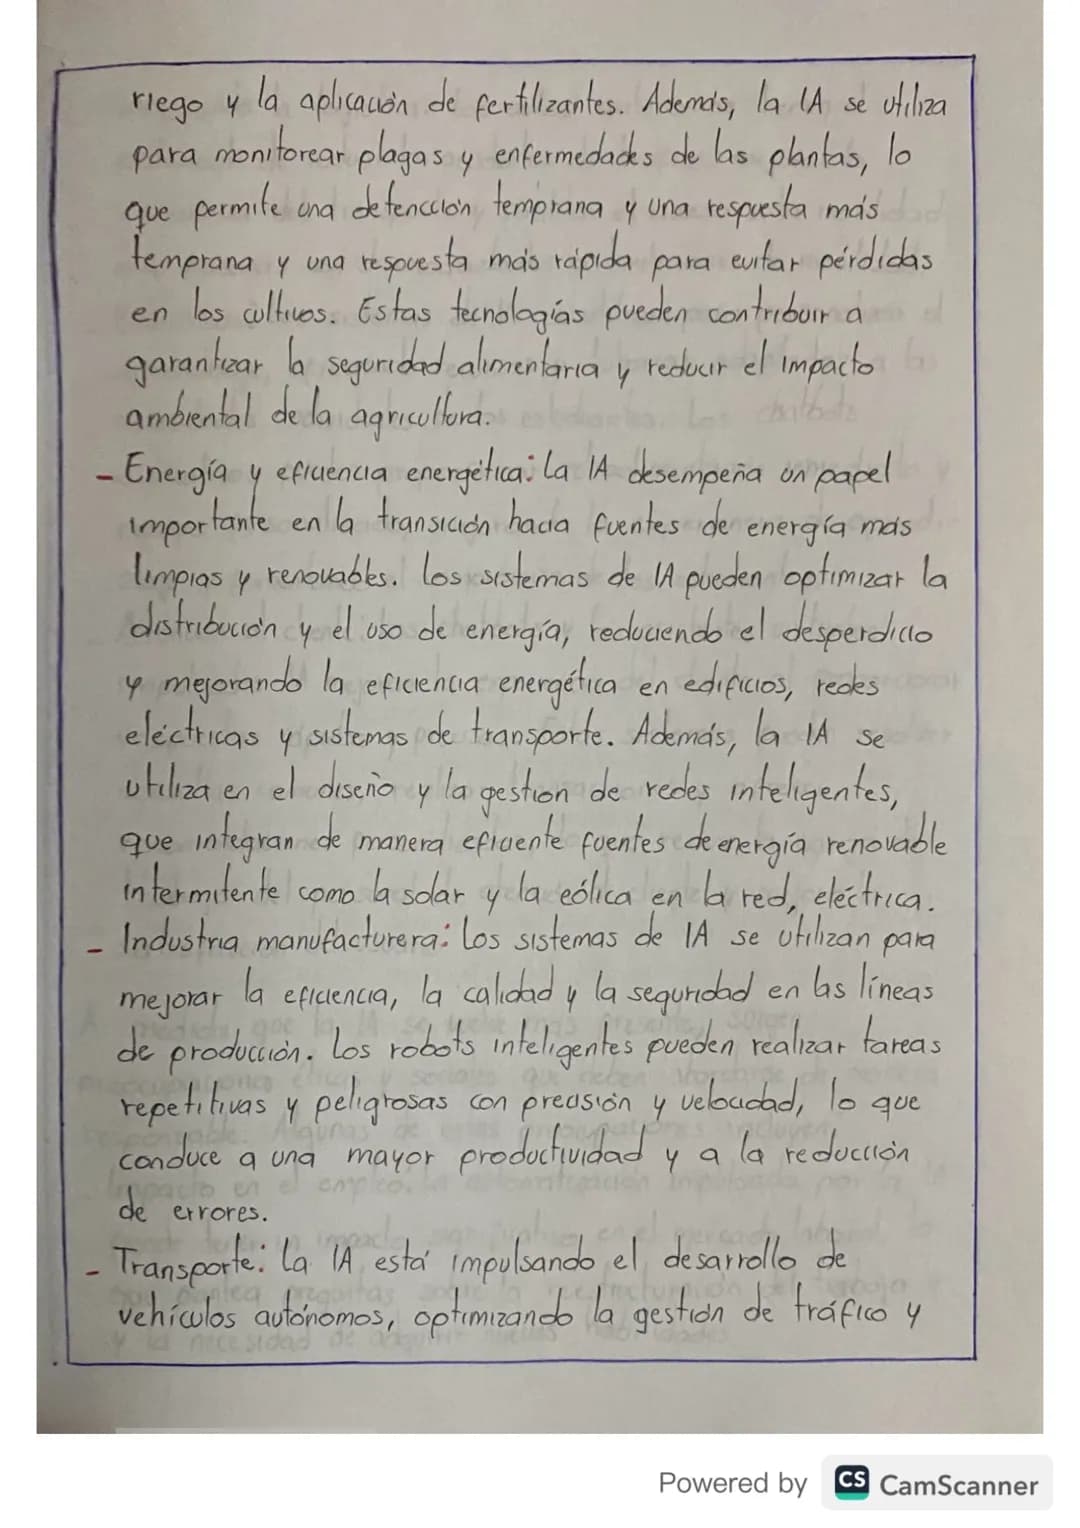 riego y la aplicación de fertilizantes. Además, la IA se utiliza
para monitorear plagas y enfermedades de las plantas, lo
que permite una detencción temprana y una respuesta más
temprana y una respuesta más rápida para evitar pérdidas
en los cultivos. Estas tecnologías pueden contribuir a
garantizar la seguridad alimentaria y reducir el impacto
ambiental de la agricultura.
- Energía y eficiencia energética: La IA desempeña un papel
importante en la transición hacia fuentes de energía más
limpias y renovables. Los sistemas de IA pueden optimizar la
distribución y el uso de energía, reduciendo el desperdicio
y mejorando la eficiencia energética en edificios, redes
eléctricas y sistemas de transporte. Además, la IA se
utiliza en el diseño y la gestion de redes inteligentes,
que integran de manera eficiente fuentes de energía renovable
intermitente como la solar y la eólica en la red, eléctrica.
- Industria manufacturera: Los sistemas de IA se utilizan para
mejorar la eficiencia, la calidad y la seguridad en las líneas
de producción. Los robots inteligentes pueden realizar tareas
repetitivas y peligrosas con precisión y velocidad, lo que
conduce a una mayor productividad y a la reducción
de errores.
- Transporte: La IA está impulsando el desarrollo de
vehículos autónomos, optimizando la gestión de tráfico y
Powered by CS CamScanner